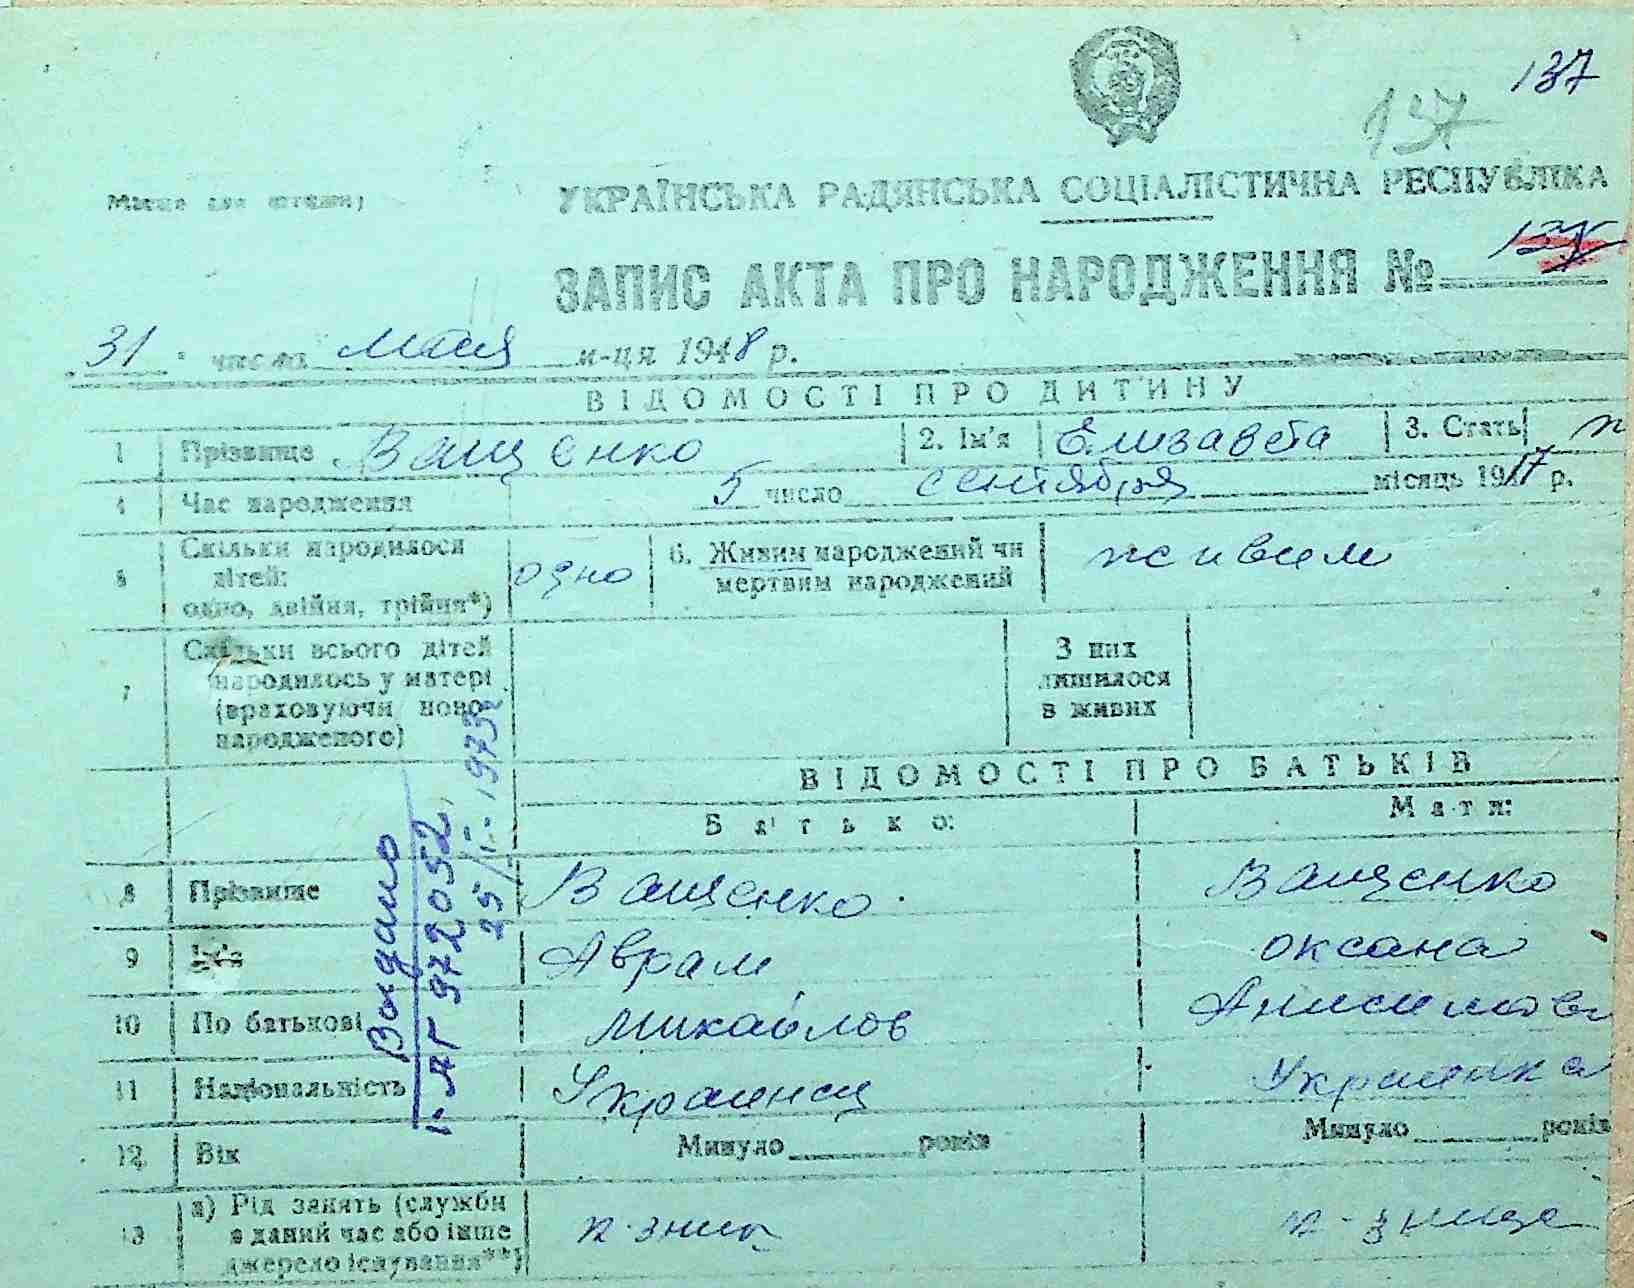 137
137
Місце для штампу
УКРАЇНСЬКА РАДЯНСЬКА СОЦІАЛІСТИЧНА РЕСПУБЛІКА
ЗАПИС АКТА ПРО НАРОДЖЕННЯ № 137
31 числа мая м-ця 1948 р.
ВІДОМОСТІ ПРО ДИТИНУ
1 Прізвище Ващенко 2. Ім'я Елизавета 3. Стать
4 Час народження 5 число сентября місяць 1917 р.
5 Скільки народилося дітей: одно, двійня, трійня*) одно 6. Живим народжений чи мертвим народжений живим
7 Скільки всього дітей народилось у матері (враховуючи новонародженого) З них лишилося в живих
ВІДОМОСТІ ПРО БАТЬКІВ
Батько: Мати:
8 Прізвище Ващенко Ващенко
9 Ім'я Аврам оксана
10 По батькові Михайлов Анисимов
11 Національність Украинец Украинка
12 Вік Минуло року Минуло років
13 а) Рід занять (служби в даний час або інше джерело існування**)
Выдано
І-АГ 972052
25/II-1973г.